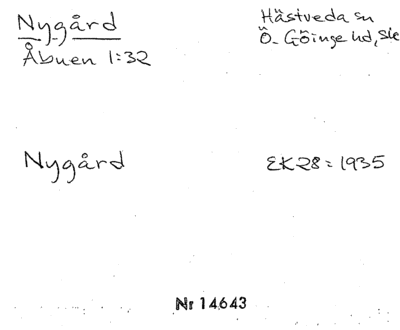 Nygård
Hästveda sn
Åbuen 1:32
Ö. Göinge hd, Sk
Nygård
EK28 = 1935
Nr 14643